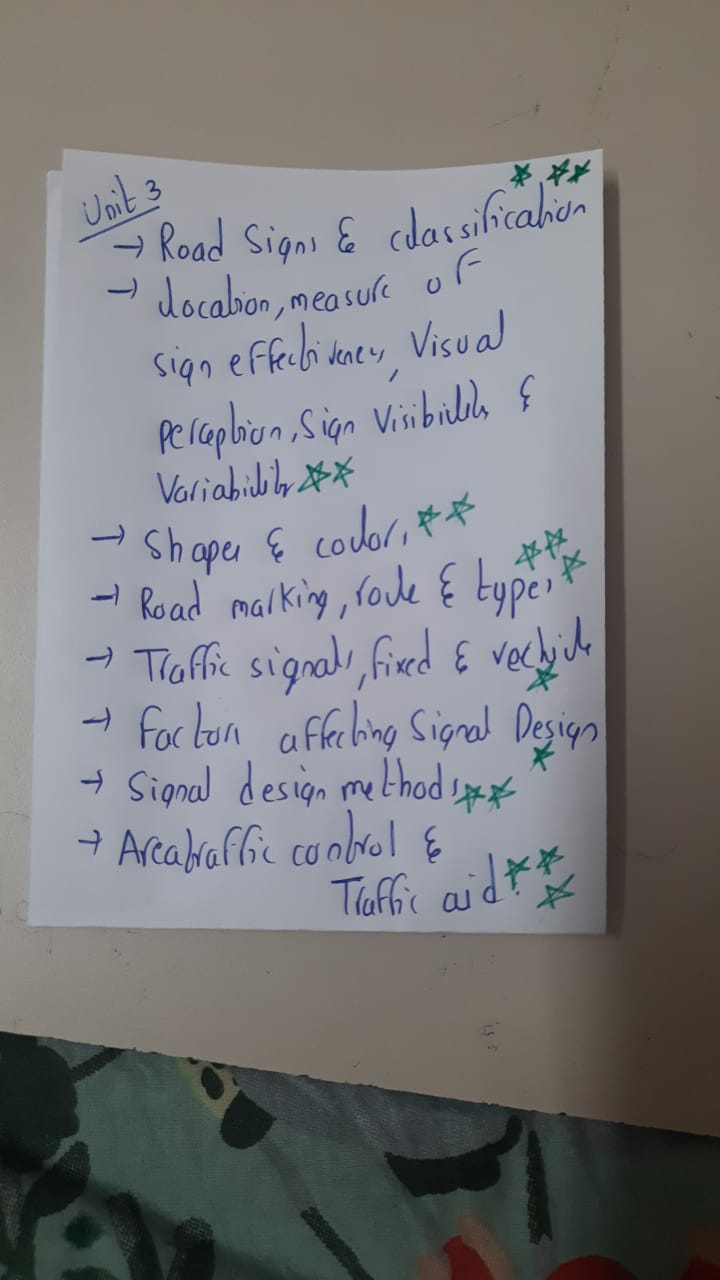 Unit 3
→ Road Signs & classification
→ location, measure of
sign effectiveness, Visual
perception, Sign Visibility &
Variability
→ Shapes & colors
→ Road marking, role & types
→ Traffic signals, fixed & vechile
→ Factors affecting Signal Design
→ Signal design methods
→ Area traffic control &
Traffic aids